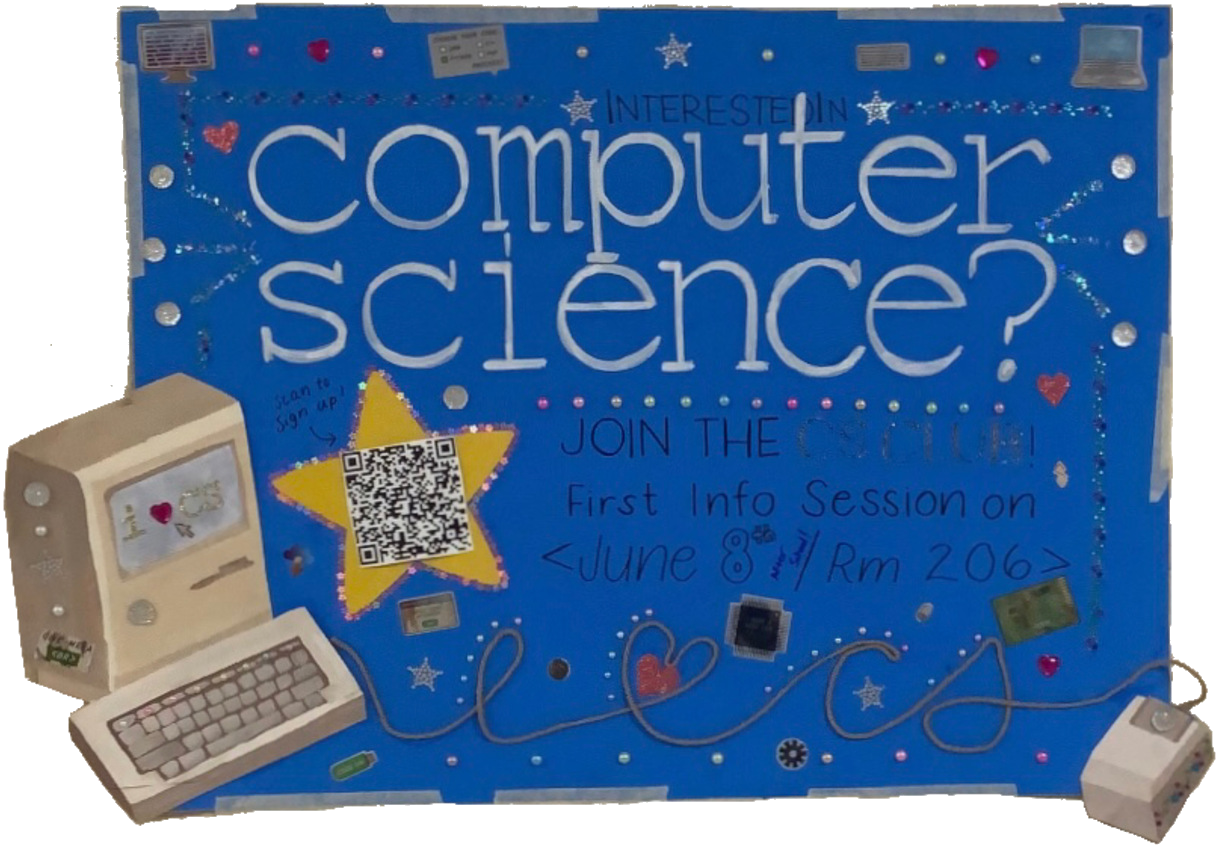 INTERESTED IN
computer
science?
scan to
sign up!
JOIN THE CS CLUB!
First Info Session on
<June 8th / Rm 206>
I ♥ CS